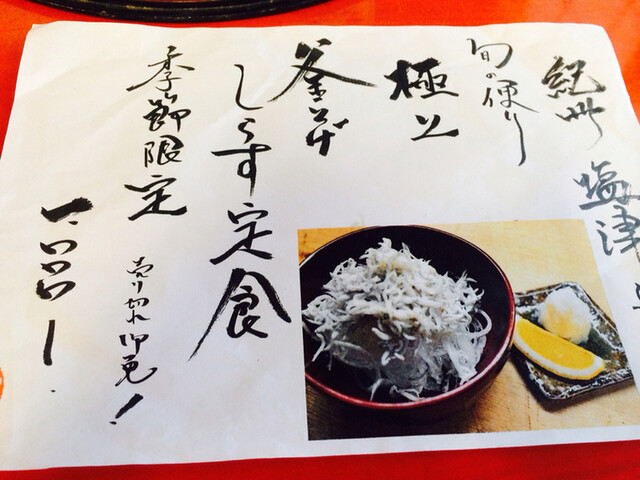 紀州 塩津
旬の便り
極上
釜茹
しらす定食
季節限定
売り切れ御免!
一、〇〇〇ー